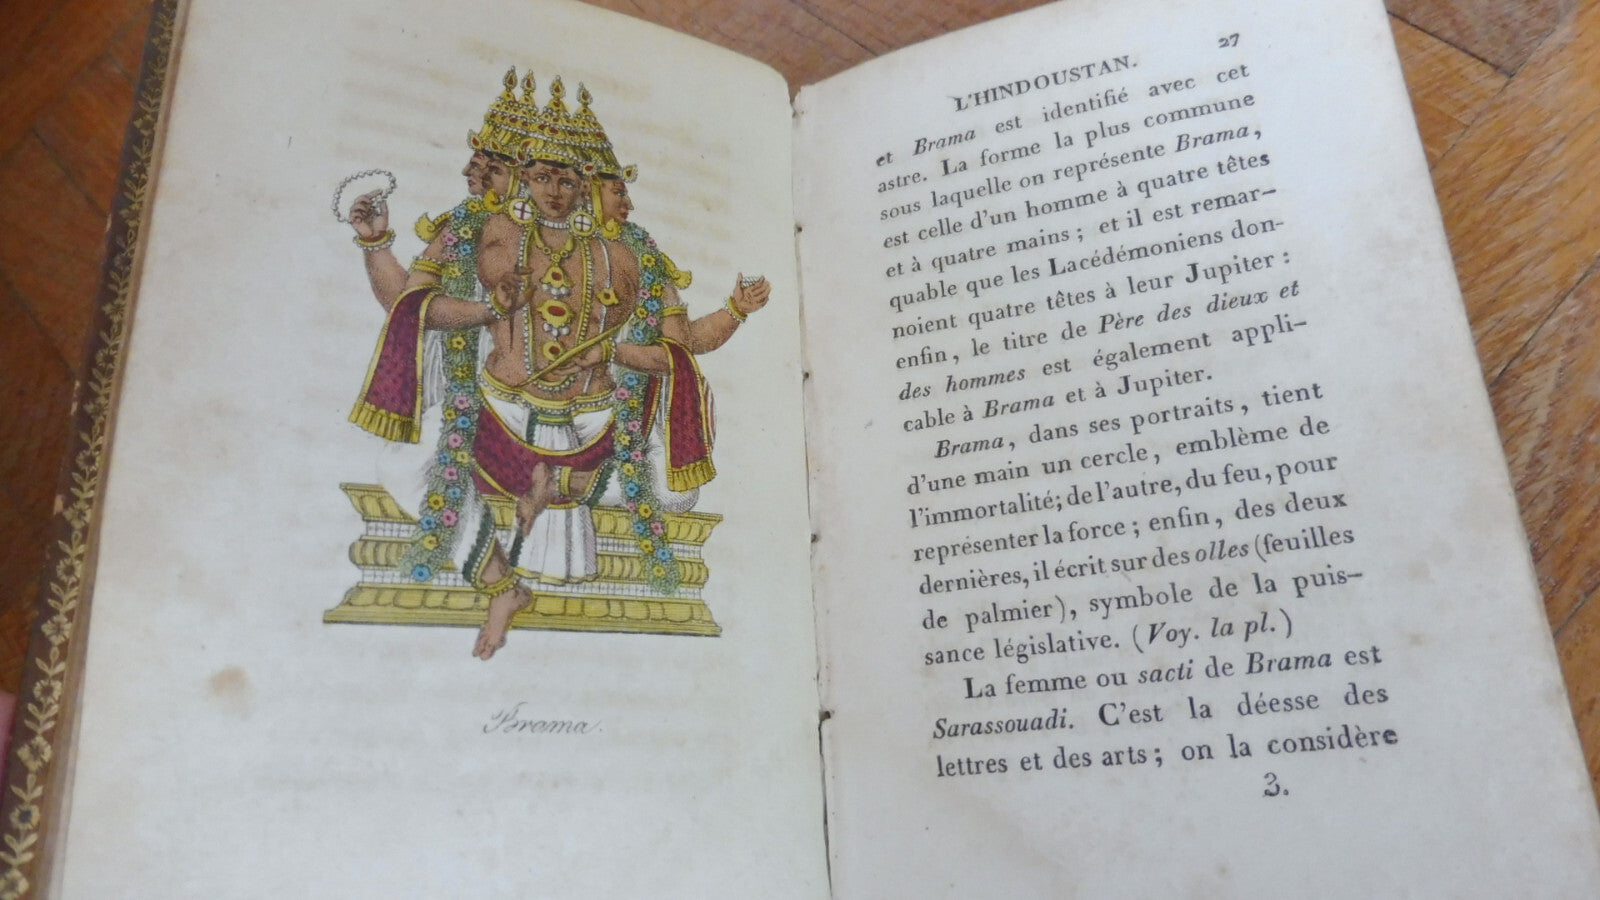 Brama.
27
L'HINDOUSTAN.
et Brama est identifié avec cet
astre. La forme la plus commune
sous laquelle on représente Brama,
est celle d'un homme à quatre têtes
et à quatre mains; et il est remar-
quable que les Lacédémoniens don-
noient quatre têtes à leur Jupiter :
enfin, le titre de Père des dieux et
des hommes est également appli-
cable à Brama et à Jupiter.
Brama, dans ses portraits, tient
d'une main un cercle, emblème de
l'immortalité; de l'autre, du feu, pour
représenter la force; enfin, des deux
dernières, il écrit sur des olles (feuilles
de palmier), symbole de la puis-
sance législative. (Voy. la pl.)
La femme ou sacti de Brama est
Sarassouadi. C'est la déesse des
lettres et des arts; on la considère
3.